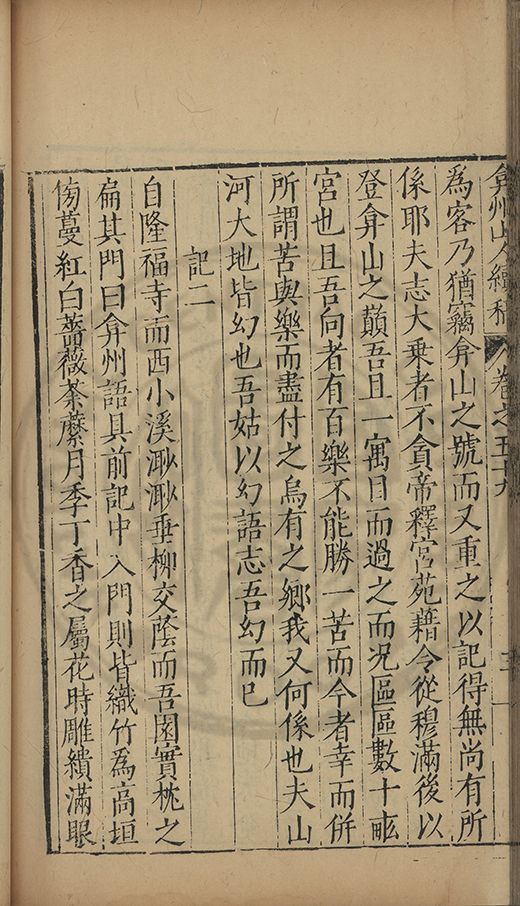 弇州山人續稿 卷之五十九
為客乃猶竊弇山之號而又重之以記得無尚有所
係耶夫志大乘者不貪帝釋宮苑藉令從穆滿後以
登弇山之巔吾且一寓目而過之而况區區數十畝
宮也且吾向者有百樂不能勝一苦而今者幸而併
所謂苦與樂而盡付之烏有之鄉我又何係也夫山
河大地皆幻也吾姑以幻語志吾幻而已
記二
自隆福寺而西小溪渺渺垂柳交蔭而吾園實枕之
扁其門曰弇州語具前記中入門則皆織竹為高垣
傍蔓紅白薔薇荼蘼月季丁香之屬花時雕繢滿眼